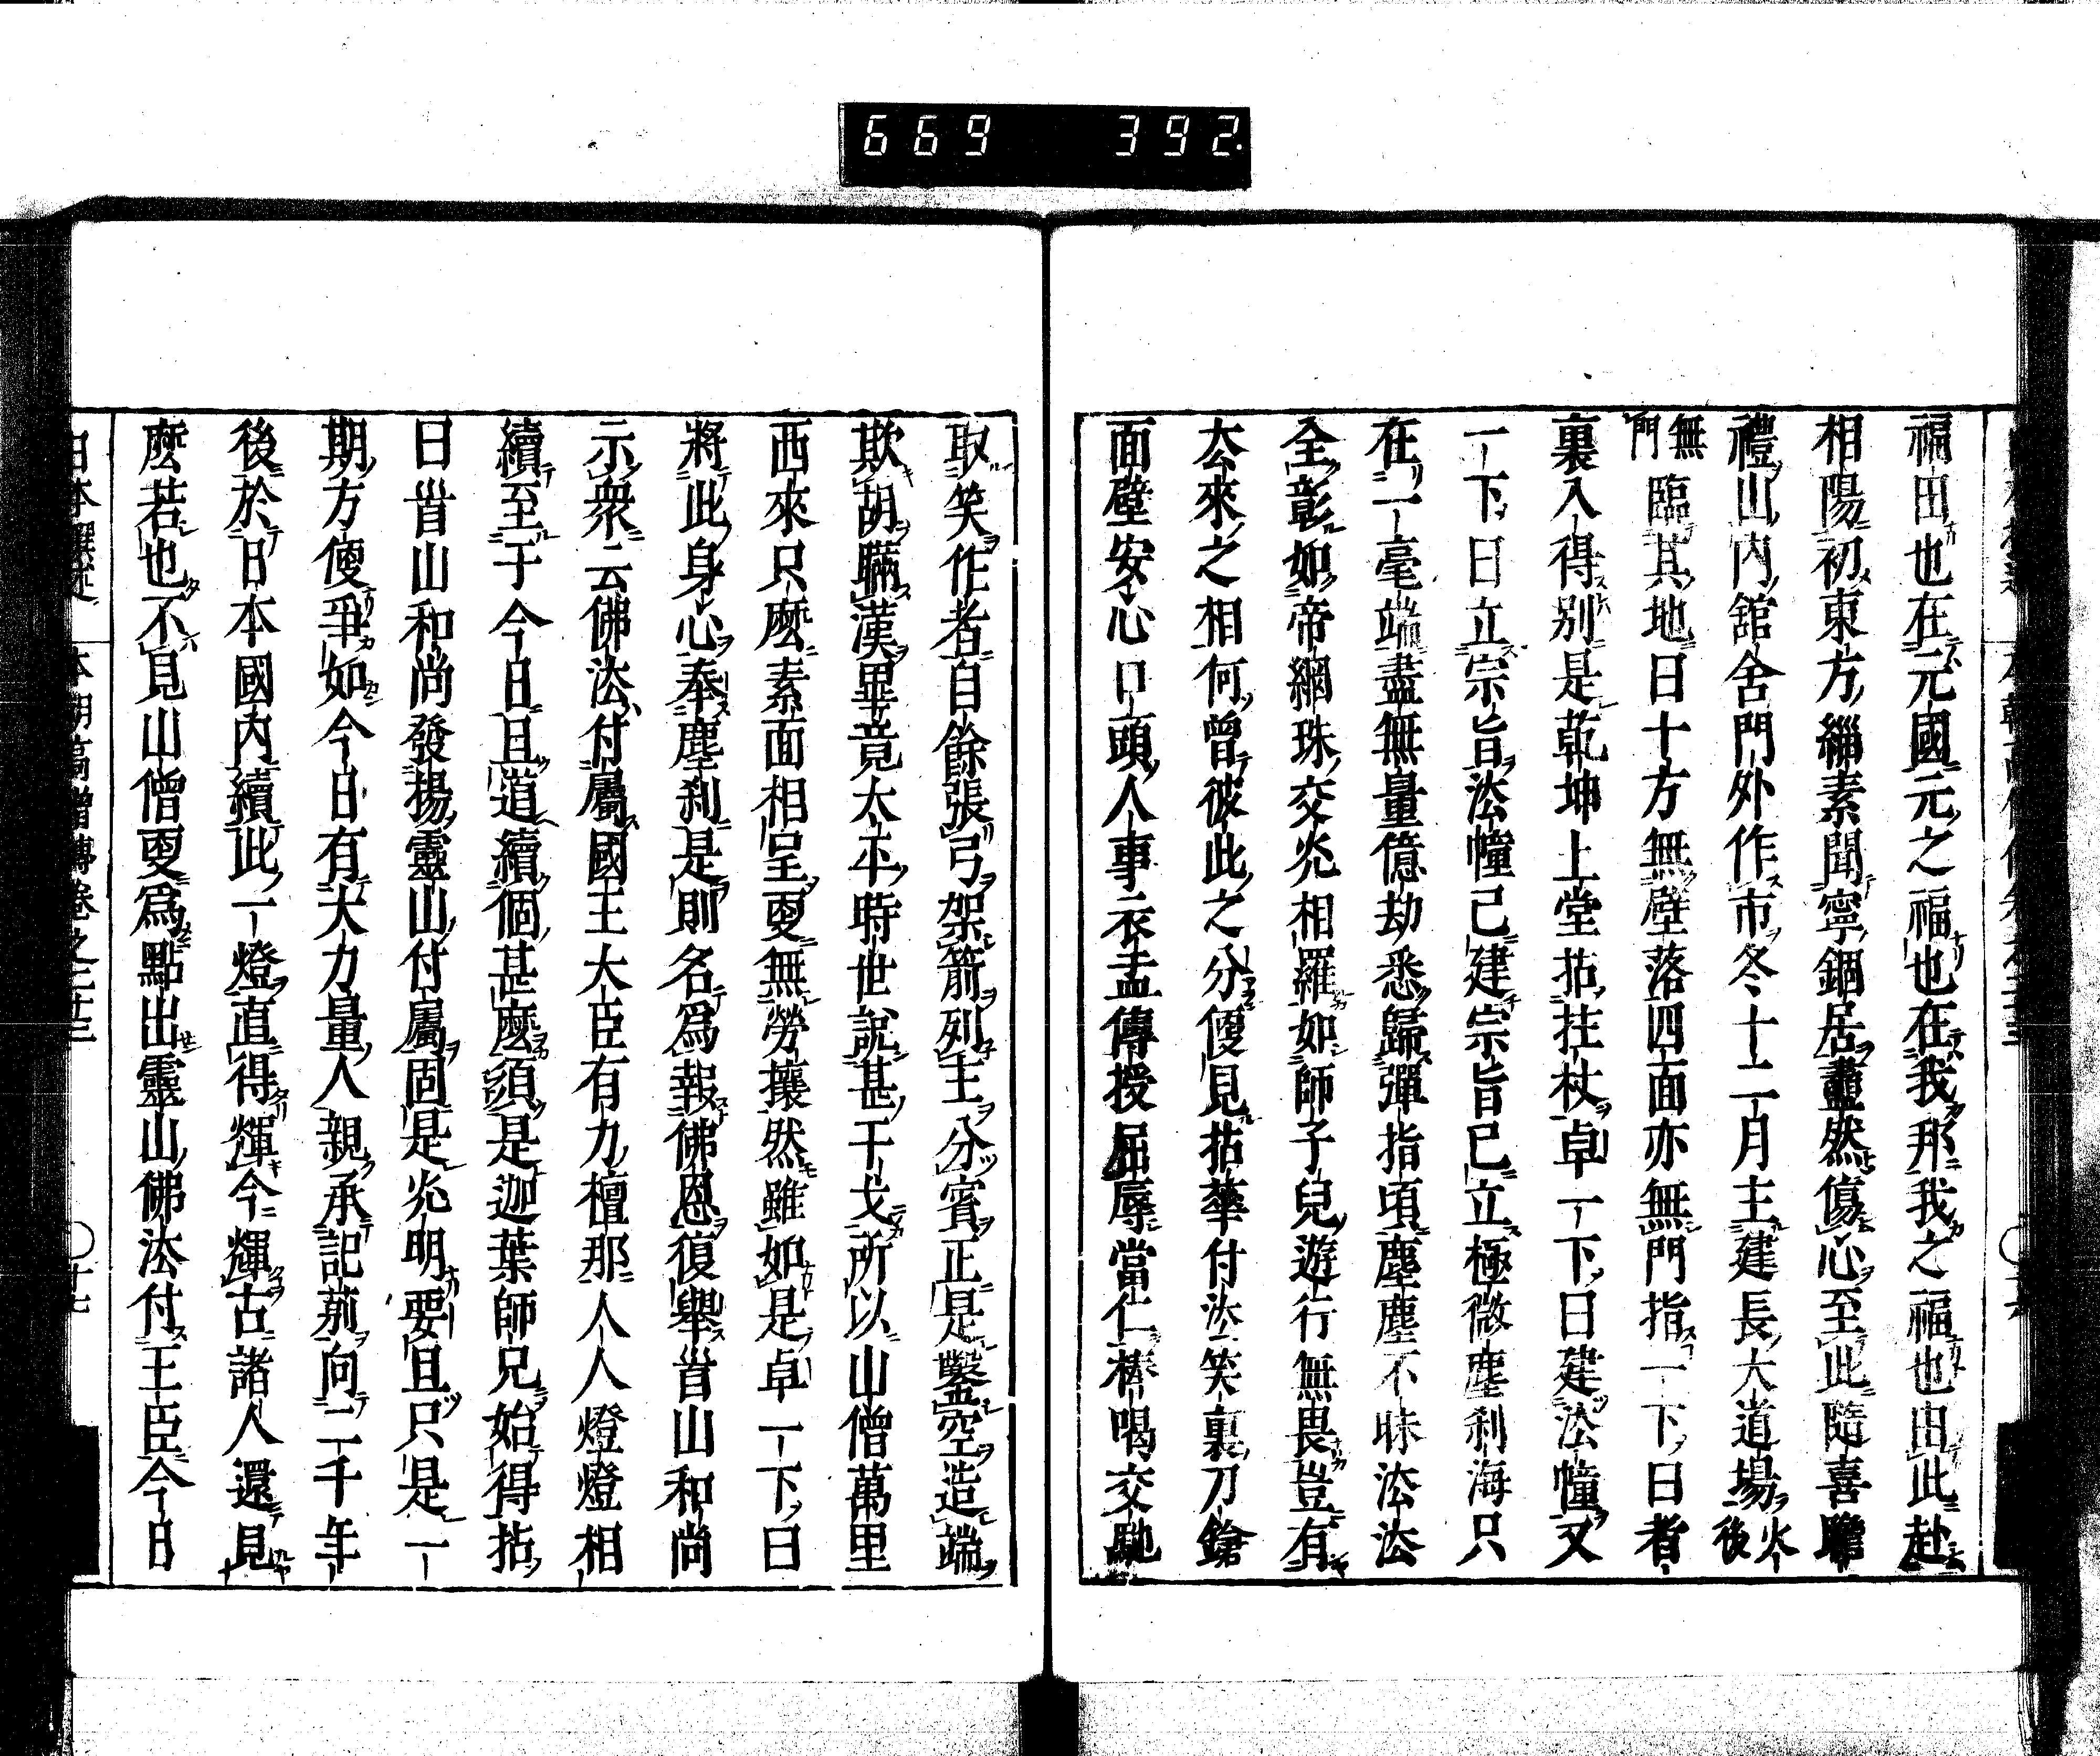 669 392
福田也在元國元之福也在我那我之福也由此赴
相陽初東方緇素聞寧錮居盡然傷心至此隨喜瞻
禮山內舘舍門外作市冬十二月主建長大道場火後
無門臨其地曰十方無壁落四面亦無門指一下曰者
裏入得別是乾坤上堂拈拄杖卓一下曰建法幢又
一下曰立宗旨法幢已建宗旨已立極微塵刹海只
在一毫端盡無量億劫悉歸彈指頃塵塵不昧法法
全彰如帝網珠交光相羅如師子兒遊行無畏豈有
去來之相何曾彼此之分便見拈華付法笑裏刀鎗
面壁安心口頭人事衣盂傳授屈辱當仁棒喝交馳
取笑作者自餘張弓架箭列主分賓正是鑿空造端
欺胡瞞漢畢竟太平時世說甚干戈所以山僧萬里
西來只麼素面相呈更無勞攘然雖如是卓一下曰
將此身心奉塵刹是則名爲報佛恩復舉首山和尚
示衆云佛法付屬國王大臣有力檀那人人燈燈相
續至于今日且道續個甚麼須是迦葉師兄始得拈
曰首山和尚發揚靈山付屬固是光明要且只是一
期方便爭如今日有大力量人親承記莂向二千年
後於日本國內續此一燈直得輝今輝古諸人還見
麼若也不見山僧更爲點出靈山佛法付王臣今日
本朝高僧傳卷之二十三